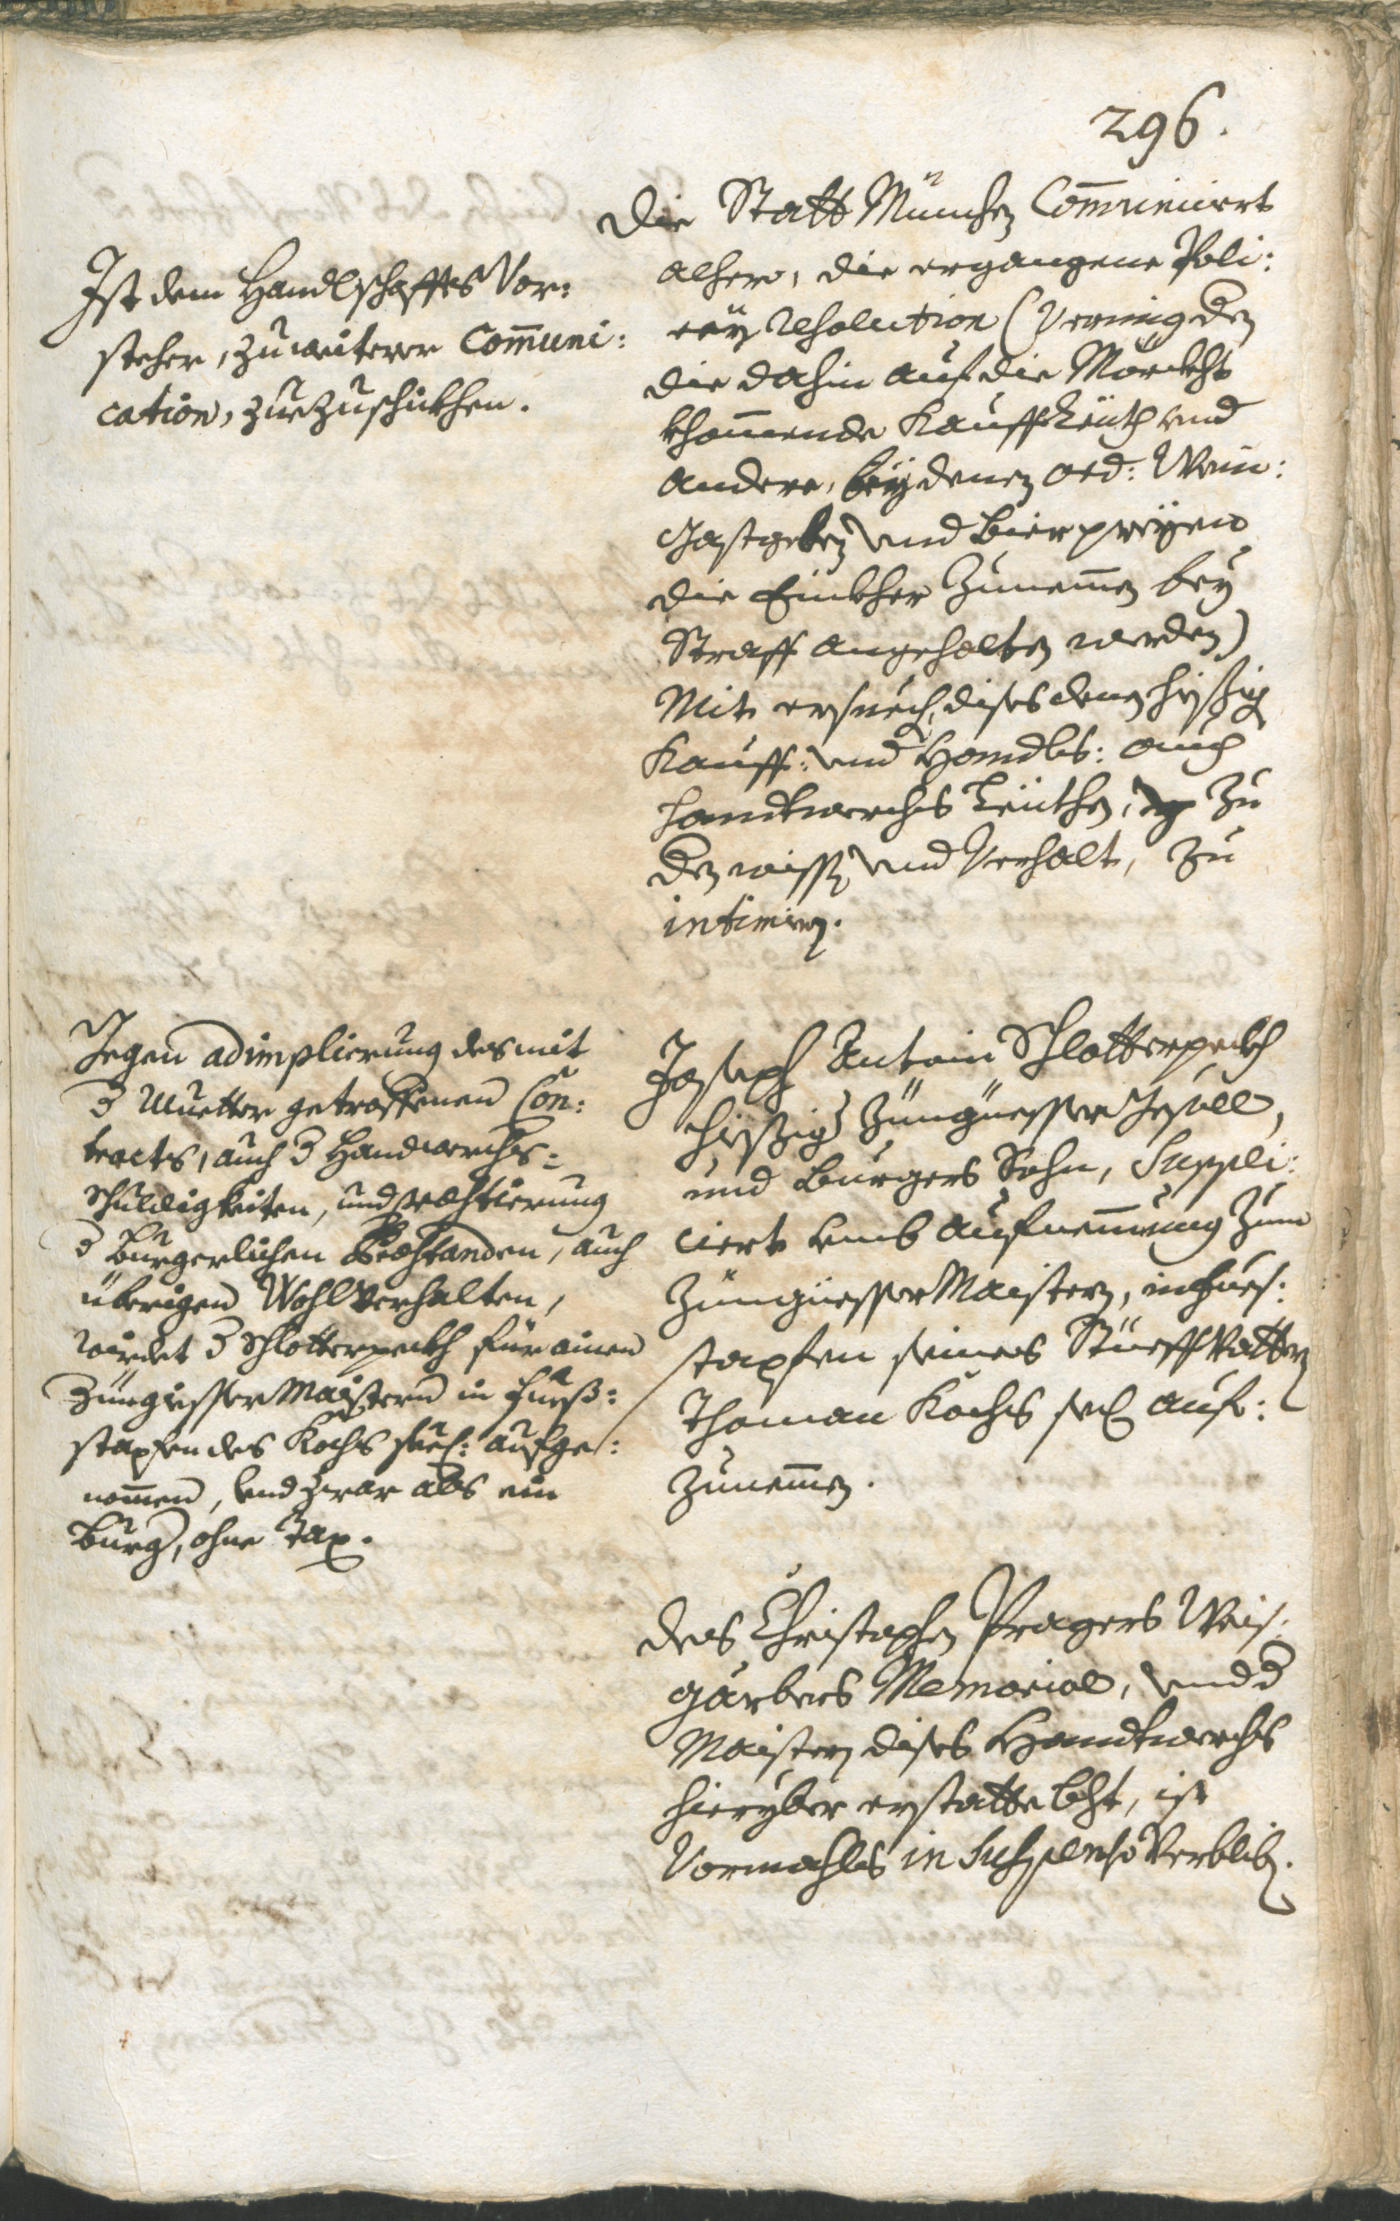 296.
Die Statt München Com̄uniciert
alhero, die ergangene Poli:
ceÿ resolution (Vermög den
die dahin auf die Märckht
khom̄ende Kauffleüth und
andere, beÿ denen ord: Wein:
Gastgeben und Bierpreÿen
die Einkher zunem̄en beÿ
Straff angehalten werden)
Mit ersuech, dises denen hießig
Kauff: und Handls: auch
handtwerchs Leüthen, zu
den wissen und Verhalt, zu
intimiren.
Ist dem Handlschaffts Vor:
steher, zu weiterer Com̄uni:
cation, zuezuschickhen.
Joseph Antoni Schlotterpeckh
hießig Züngüesser Gesöll,
und Burgers Sohn, Suppli:
ciert umb aufnem̄ung zum
Züngüesser Maistern, in Fues:
stapfen seines Stüeffvattern
Thoman Kochs seel auf:
zunem̄en.
Gegen adimplierung des mit
d Muetter getroffenen Con:
tracts, auch d Handwerchs:
schuldigkeiten, und praestierung
d Burgerlichen praestanden, auch
übrigen Wohlverhalten,
würdet d Schlotterpeckh für ainen
Züngiesser Maistern in Fueß:
stapfen des Kochs seel: aufge:
nom̄en, und zwar als ein
Burg, ohne Tax.
Des Christophen Pragers Weis:
gärbers Memorial, und d
Maistern dises Handtwerchs
hierüber erstatte bcht, ist
Vormahls in Suspenso Verblib.